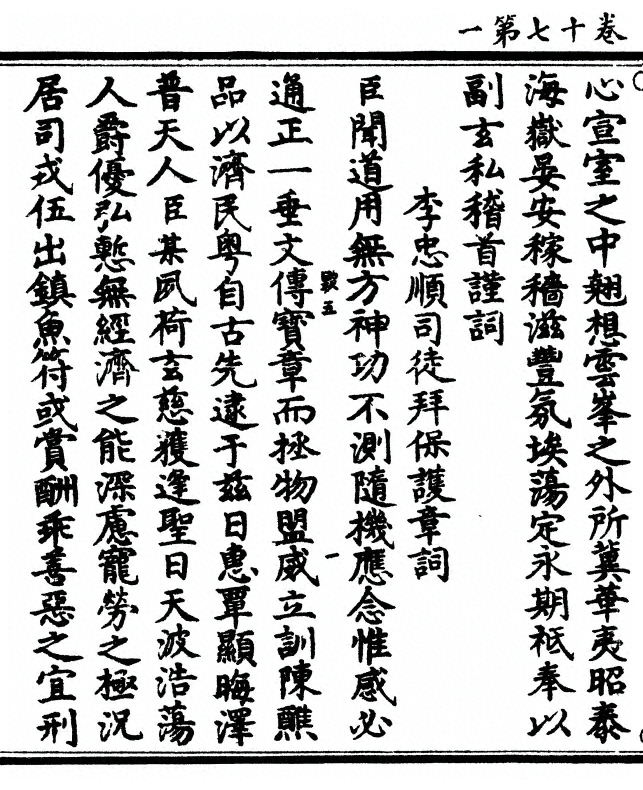 卷十七第一
心宣室之中翹想雲峯之外所冀華夷昭泰
海嶽晏安稼穡滋豐氛埃蕩定永期祗奉以
副玄私稽首謹詞
李忠順司徒拜保護章詞
臣聞道用無方神功不測隨機應念惟感必
通正一垂文傳寶章而拯物盟威立訓陳醮
品以濟民粵自古先逮于茲日惠罩顯晦澤
普天人臣某夙荷玄慈獲逢聖日天波浩蕩
人爵優弘慙無經濟之能深慮寵勞之極況
居司戎伍出鎮魚符或賞酬乖善惡之宜刑
斁五
一